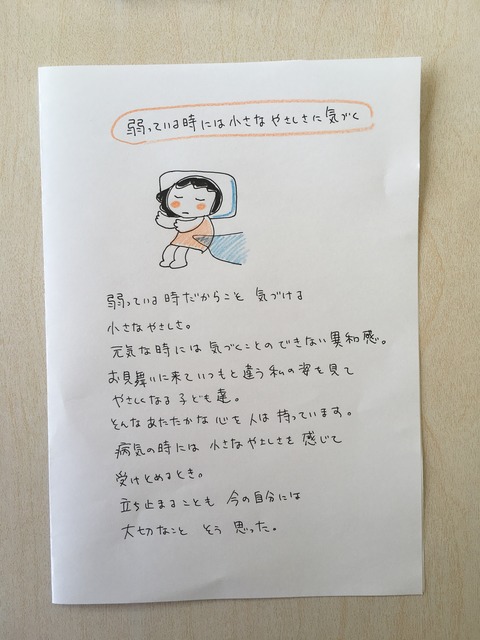 弱っている時には小さなやさしさに気づく
弱っている時だからこと 気づける
小さなやさしさ。
元気な時には気づくことのできない異和感。
お見舞いに来ていつもと違う私の姿を見て
やさしくなる子ども達。
そんなあたたかな心を人は持っています。
病気の時には 小さなやさしさを 感じて
受けとめるとき。
立ち止まることも 今の自分には
大切なこと そう 思った。